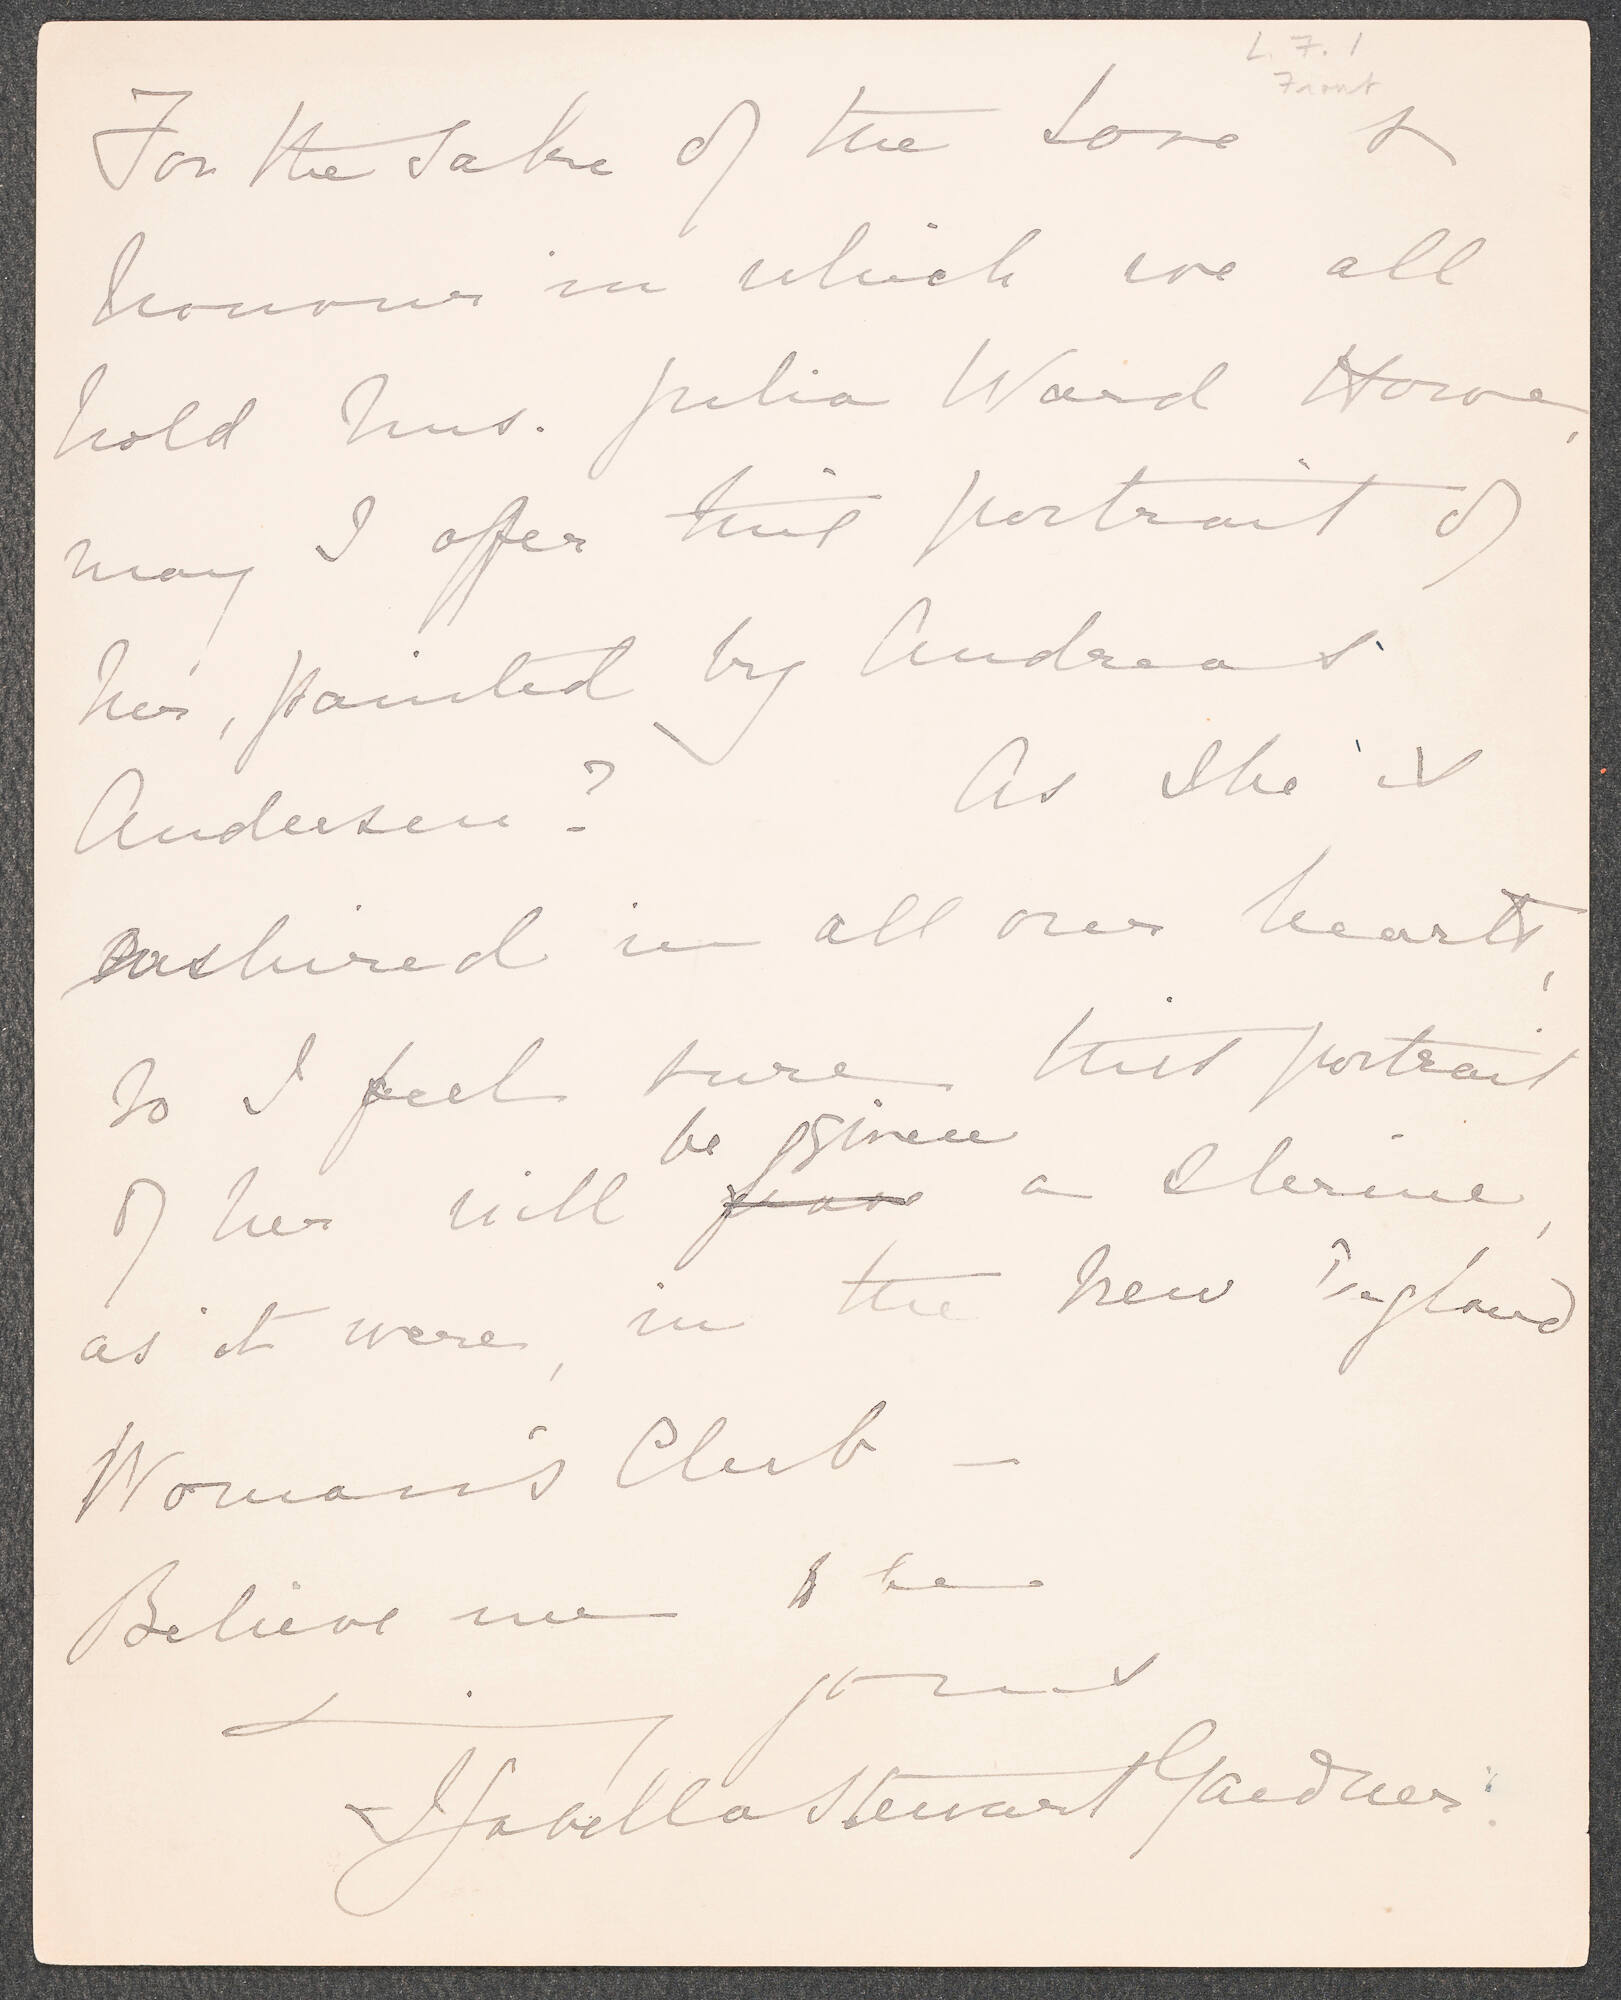 L. 7. 1
Front
For the sake of the love &
honour in which we all
hold Mrs. Julia Ward Howe,
may I offer this portrait of
her, painted by Andreas
Andersen? As she is
enshrined in all our hearts,
so I feel sure this portrait
be given
of her will a shrine,
as it were, in the New England
Woman's Club —
Believe me to be
yours
Isabella Stewart Gardner.